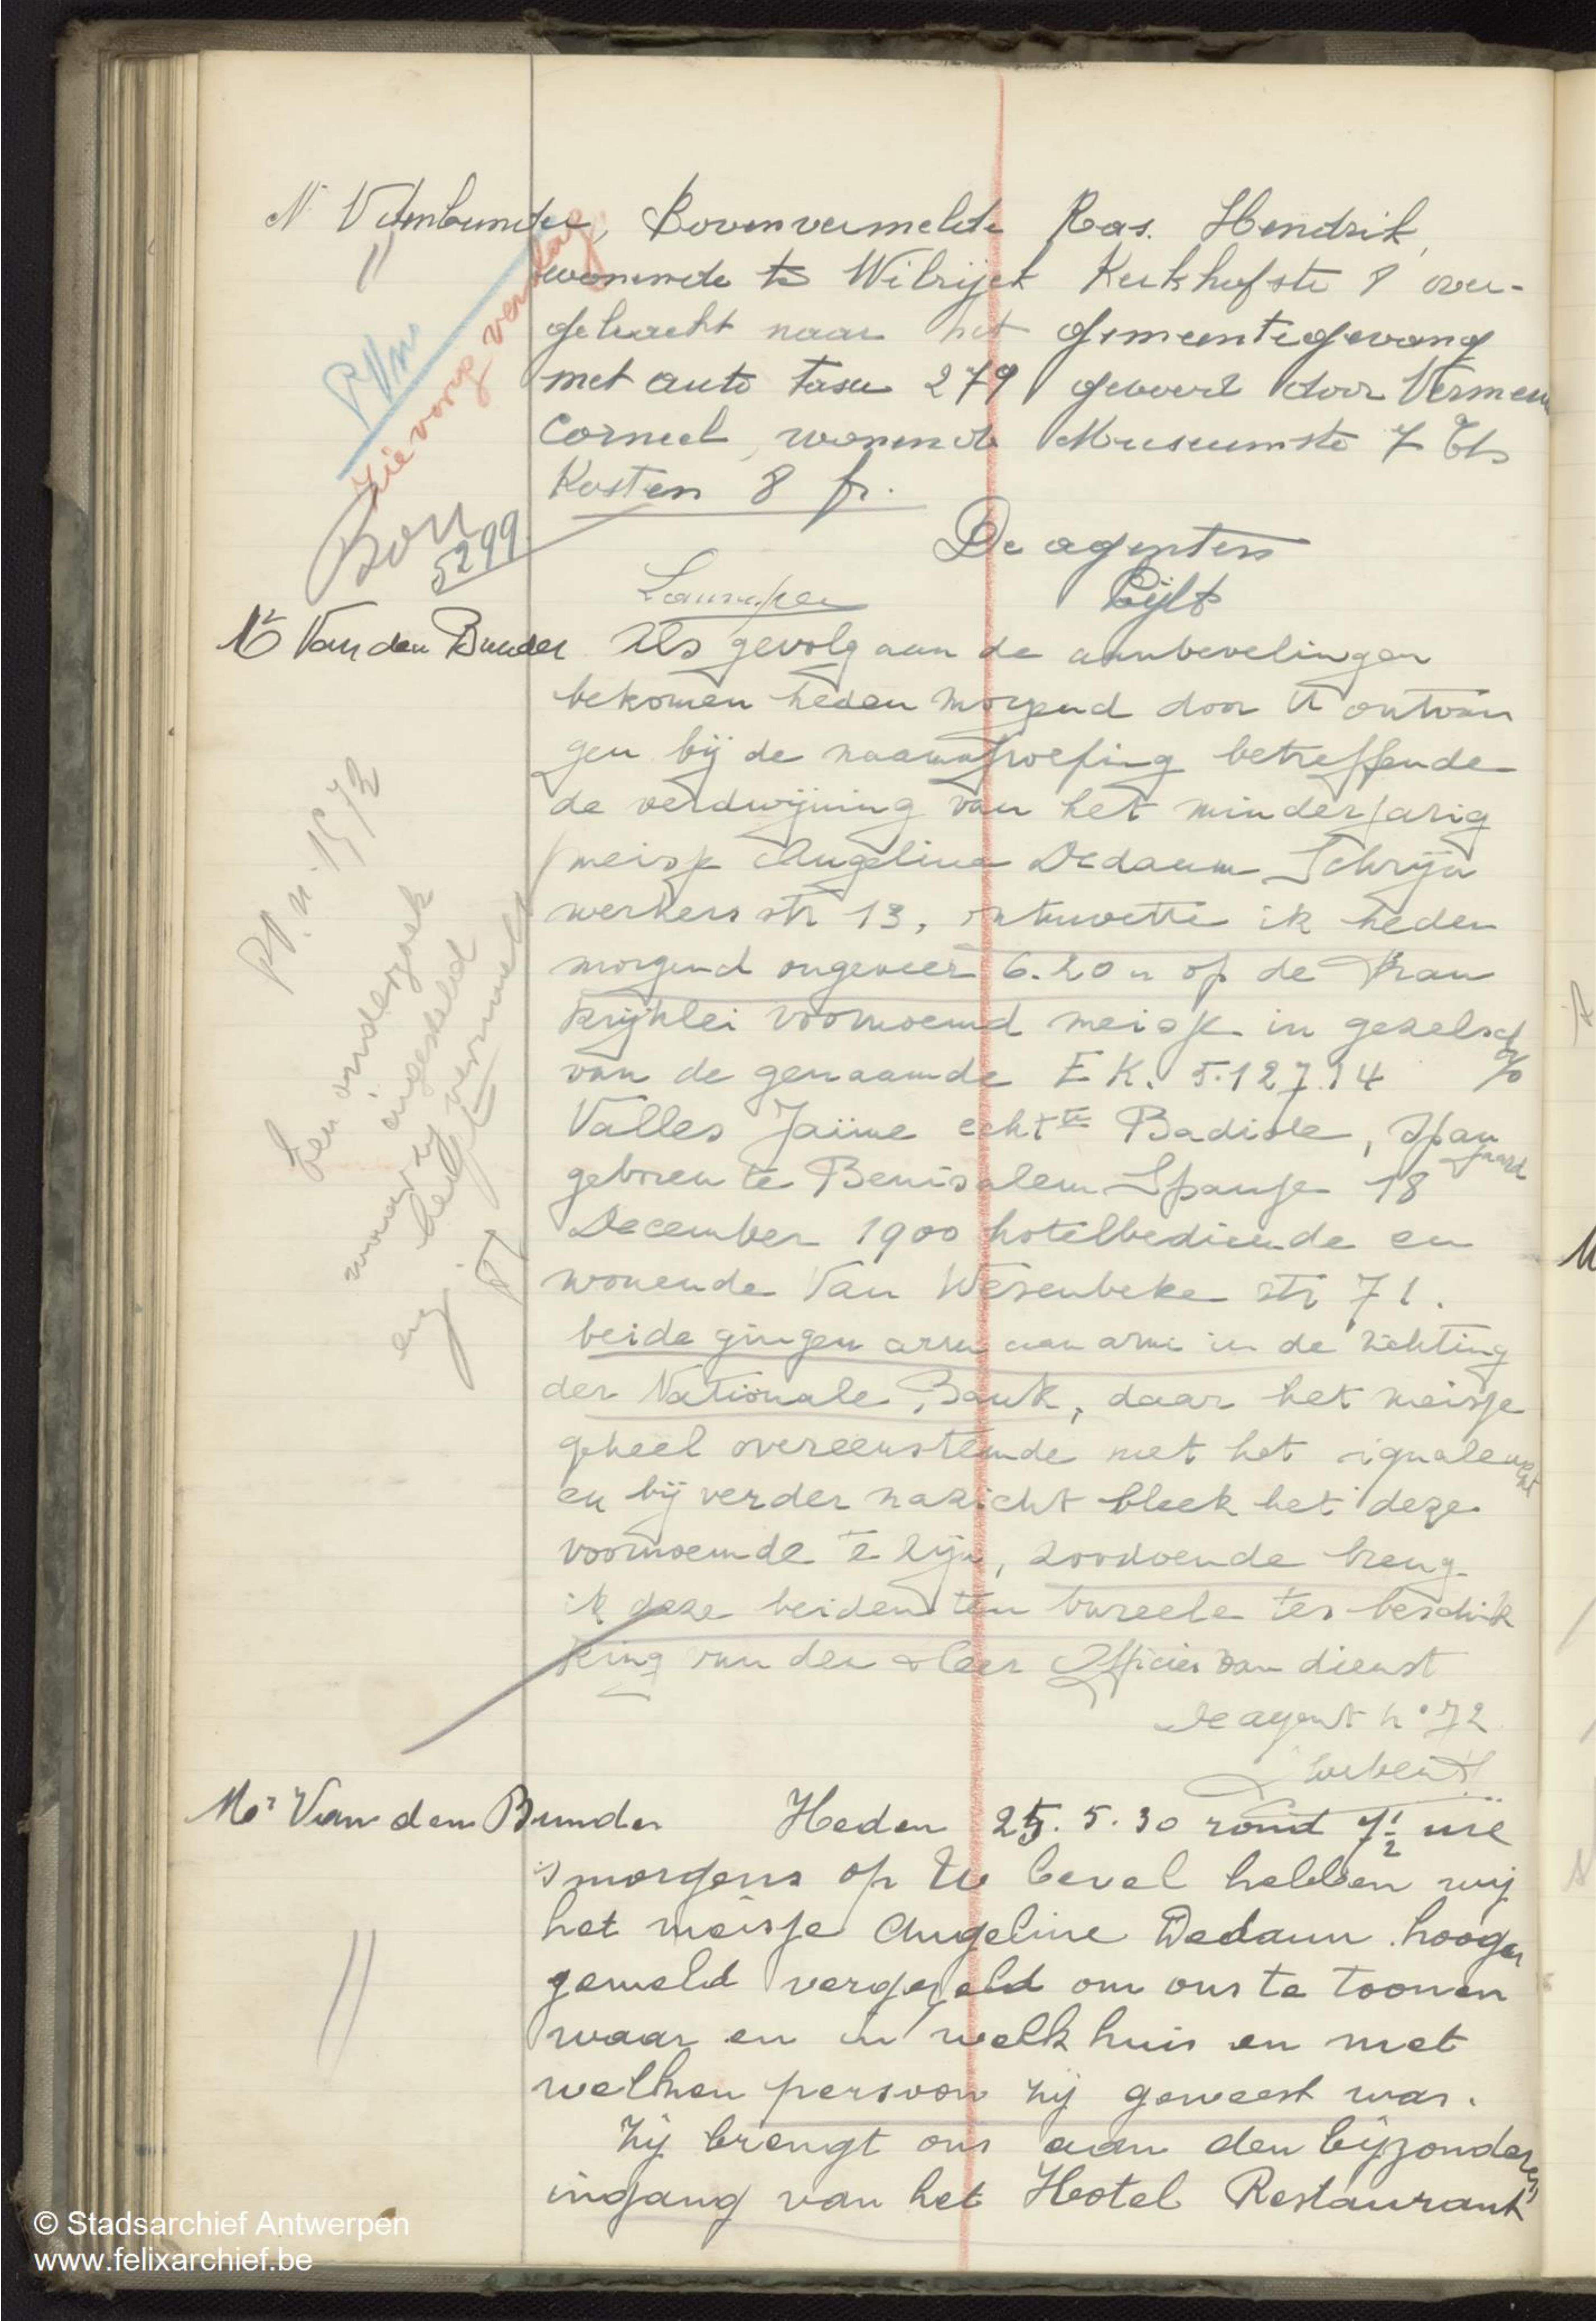 Mr Vandenbunder, Bovenvermelde Ras. Hendrik,
wonende te Wilrijck Kerkhofstr 8 over-
gebracht naar het gemeentegevang
met auto taxi 279 gevoerd door
Corneel, wonende Museumstr 7
Kosten 8 fr.
PV n
zie vorig verslag
Bon
5299
De agenten
Mr Van den Bunder Als gevolg aan de aanbevelingen
bekomen heden morgend door U ontvan
gen bij de naamafroeping betreffende
de verdwijning van het minderjarig
meisje Angelina Dedaum Schrijn
werkers str 13, ontmoette ik heden
morgend ongeveer 6.20 u op de Fran
krijklei voornoemd meisje in gezelsch
van de genaamde E K. 5.127.14 %
Valles Jaïme echtte Badiole, Span
jaard
geboren te Benisalem Spanje 18
December 1900 hotelbediende en
wonende Van Wesenbeke str 71.
beide gingen arm aan arm in de richting
der Nationale Bank, daar het meisje
geheel overeenstemde met het signalement
en bij verder nazicht bleek het deze
voornoemde te zijn, zoodoende breng
ik deze beiden ten bureele ter beschik
king van den Heer Officier van dienst
De agent n° 72
PV. n. 1572
Een onderzoek
ingesteld
Mr Van den Bunder Heden 25.5.30 rond 7 1/2 ure
's morgens op Uw bevel hebben wij
het meisje Angeline Dedaum hooger
gemeld vergezeld om ons te toonen
waar en in welk huis en met
welken persoon zij geweest was.
Zij brengt ons aan den bijzonderen
ingang van het Hotel Restaurant
© Stadsarchief Antwerpen
www.felixarchief.be